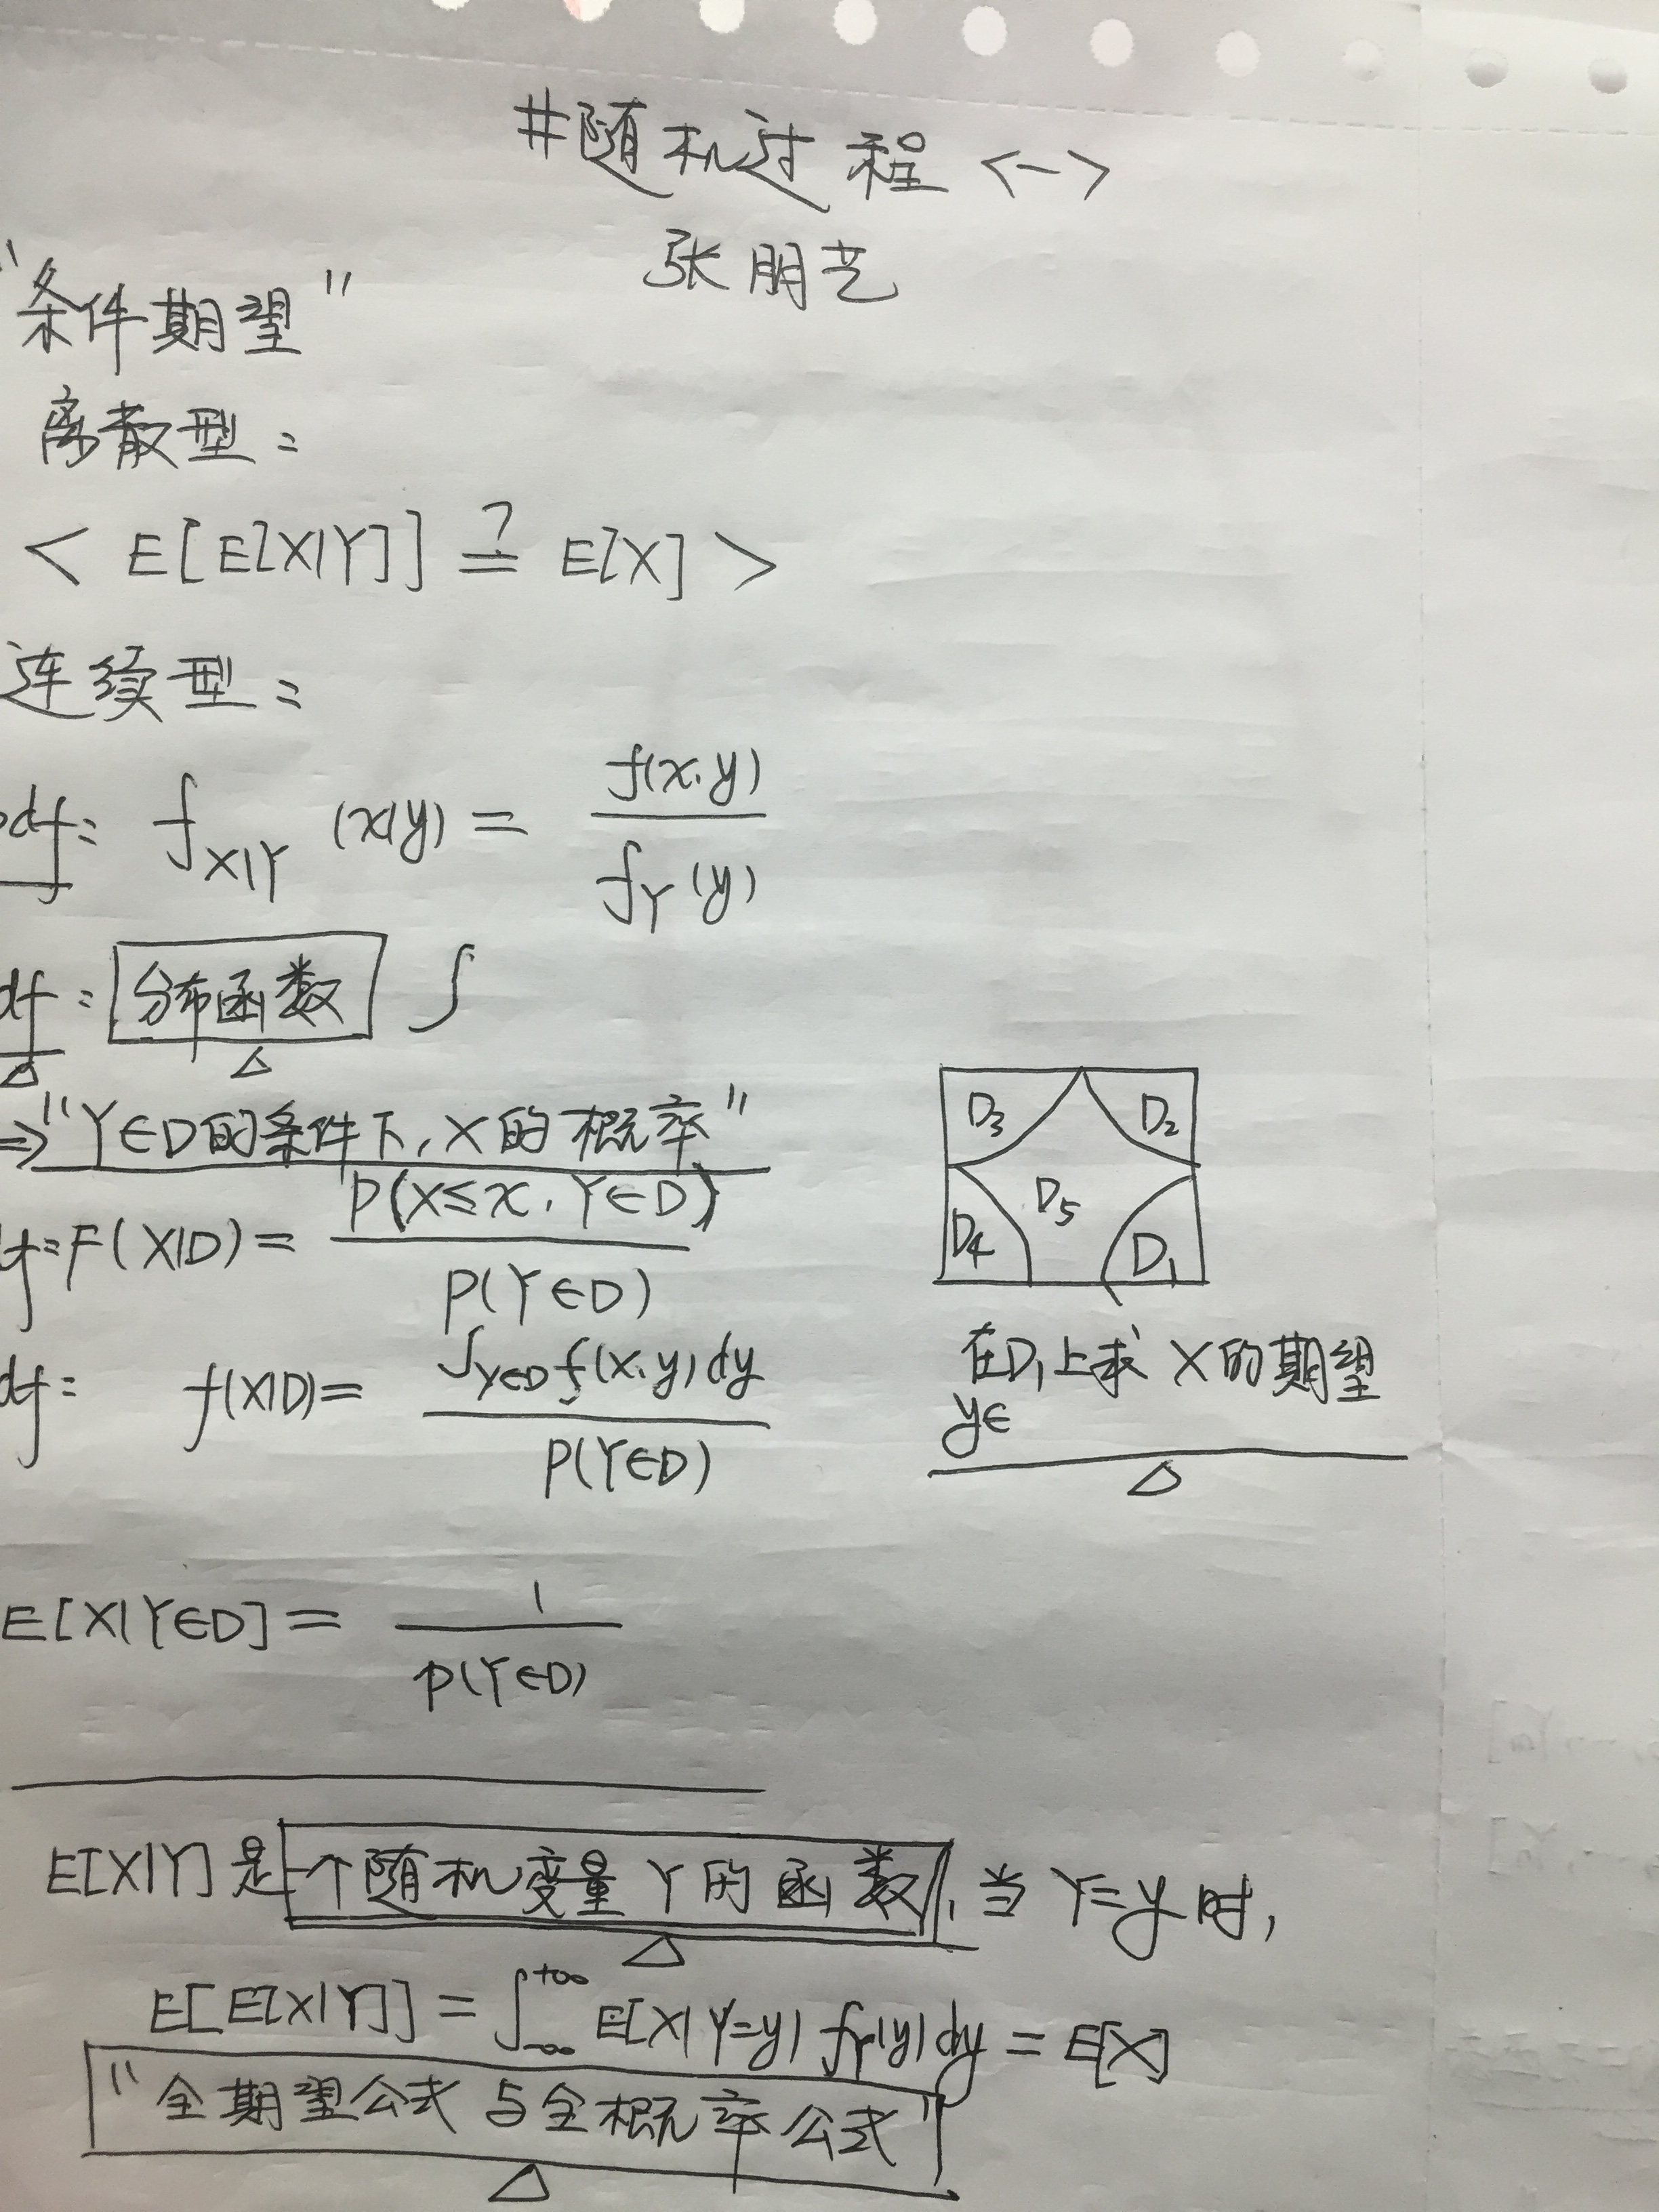 #随机过程 <一>
张朋艺
"条件期望"
离散型:
< E[E[X|Y]] ?= E[X] >
连续型:
pdf: f_{X|Y} (x|y) = f(x,y) / f_Y(y)
df: 分布函数 ∫
⇒ "Y∈D的条件下,X的概率"
df: F(X|D) = P(X≤x, Y∈D) / P(Y∈D)
df: f(X|D) = ∫_{Y∈D} f(x,y) dy / P(Y∈D)
D3 D2
D5
D4 D1
在D1上求 X的期望
y∈
E[X|Y∈D] = 1 / P(Y∈D)
E[X|Y] 是一个随机变量 Y 的函数, 当 Y=y 时,
E[E[X|Y]] = ∫_{-∞}^{+∞} E[X|Y=y] f_Y(y) dy = E[X]
"全期望公式与全概率公式"